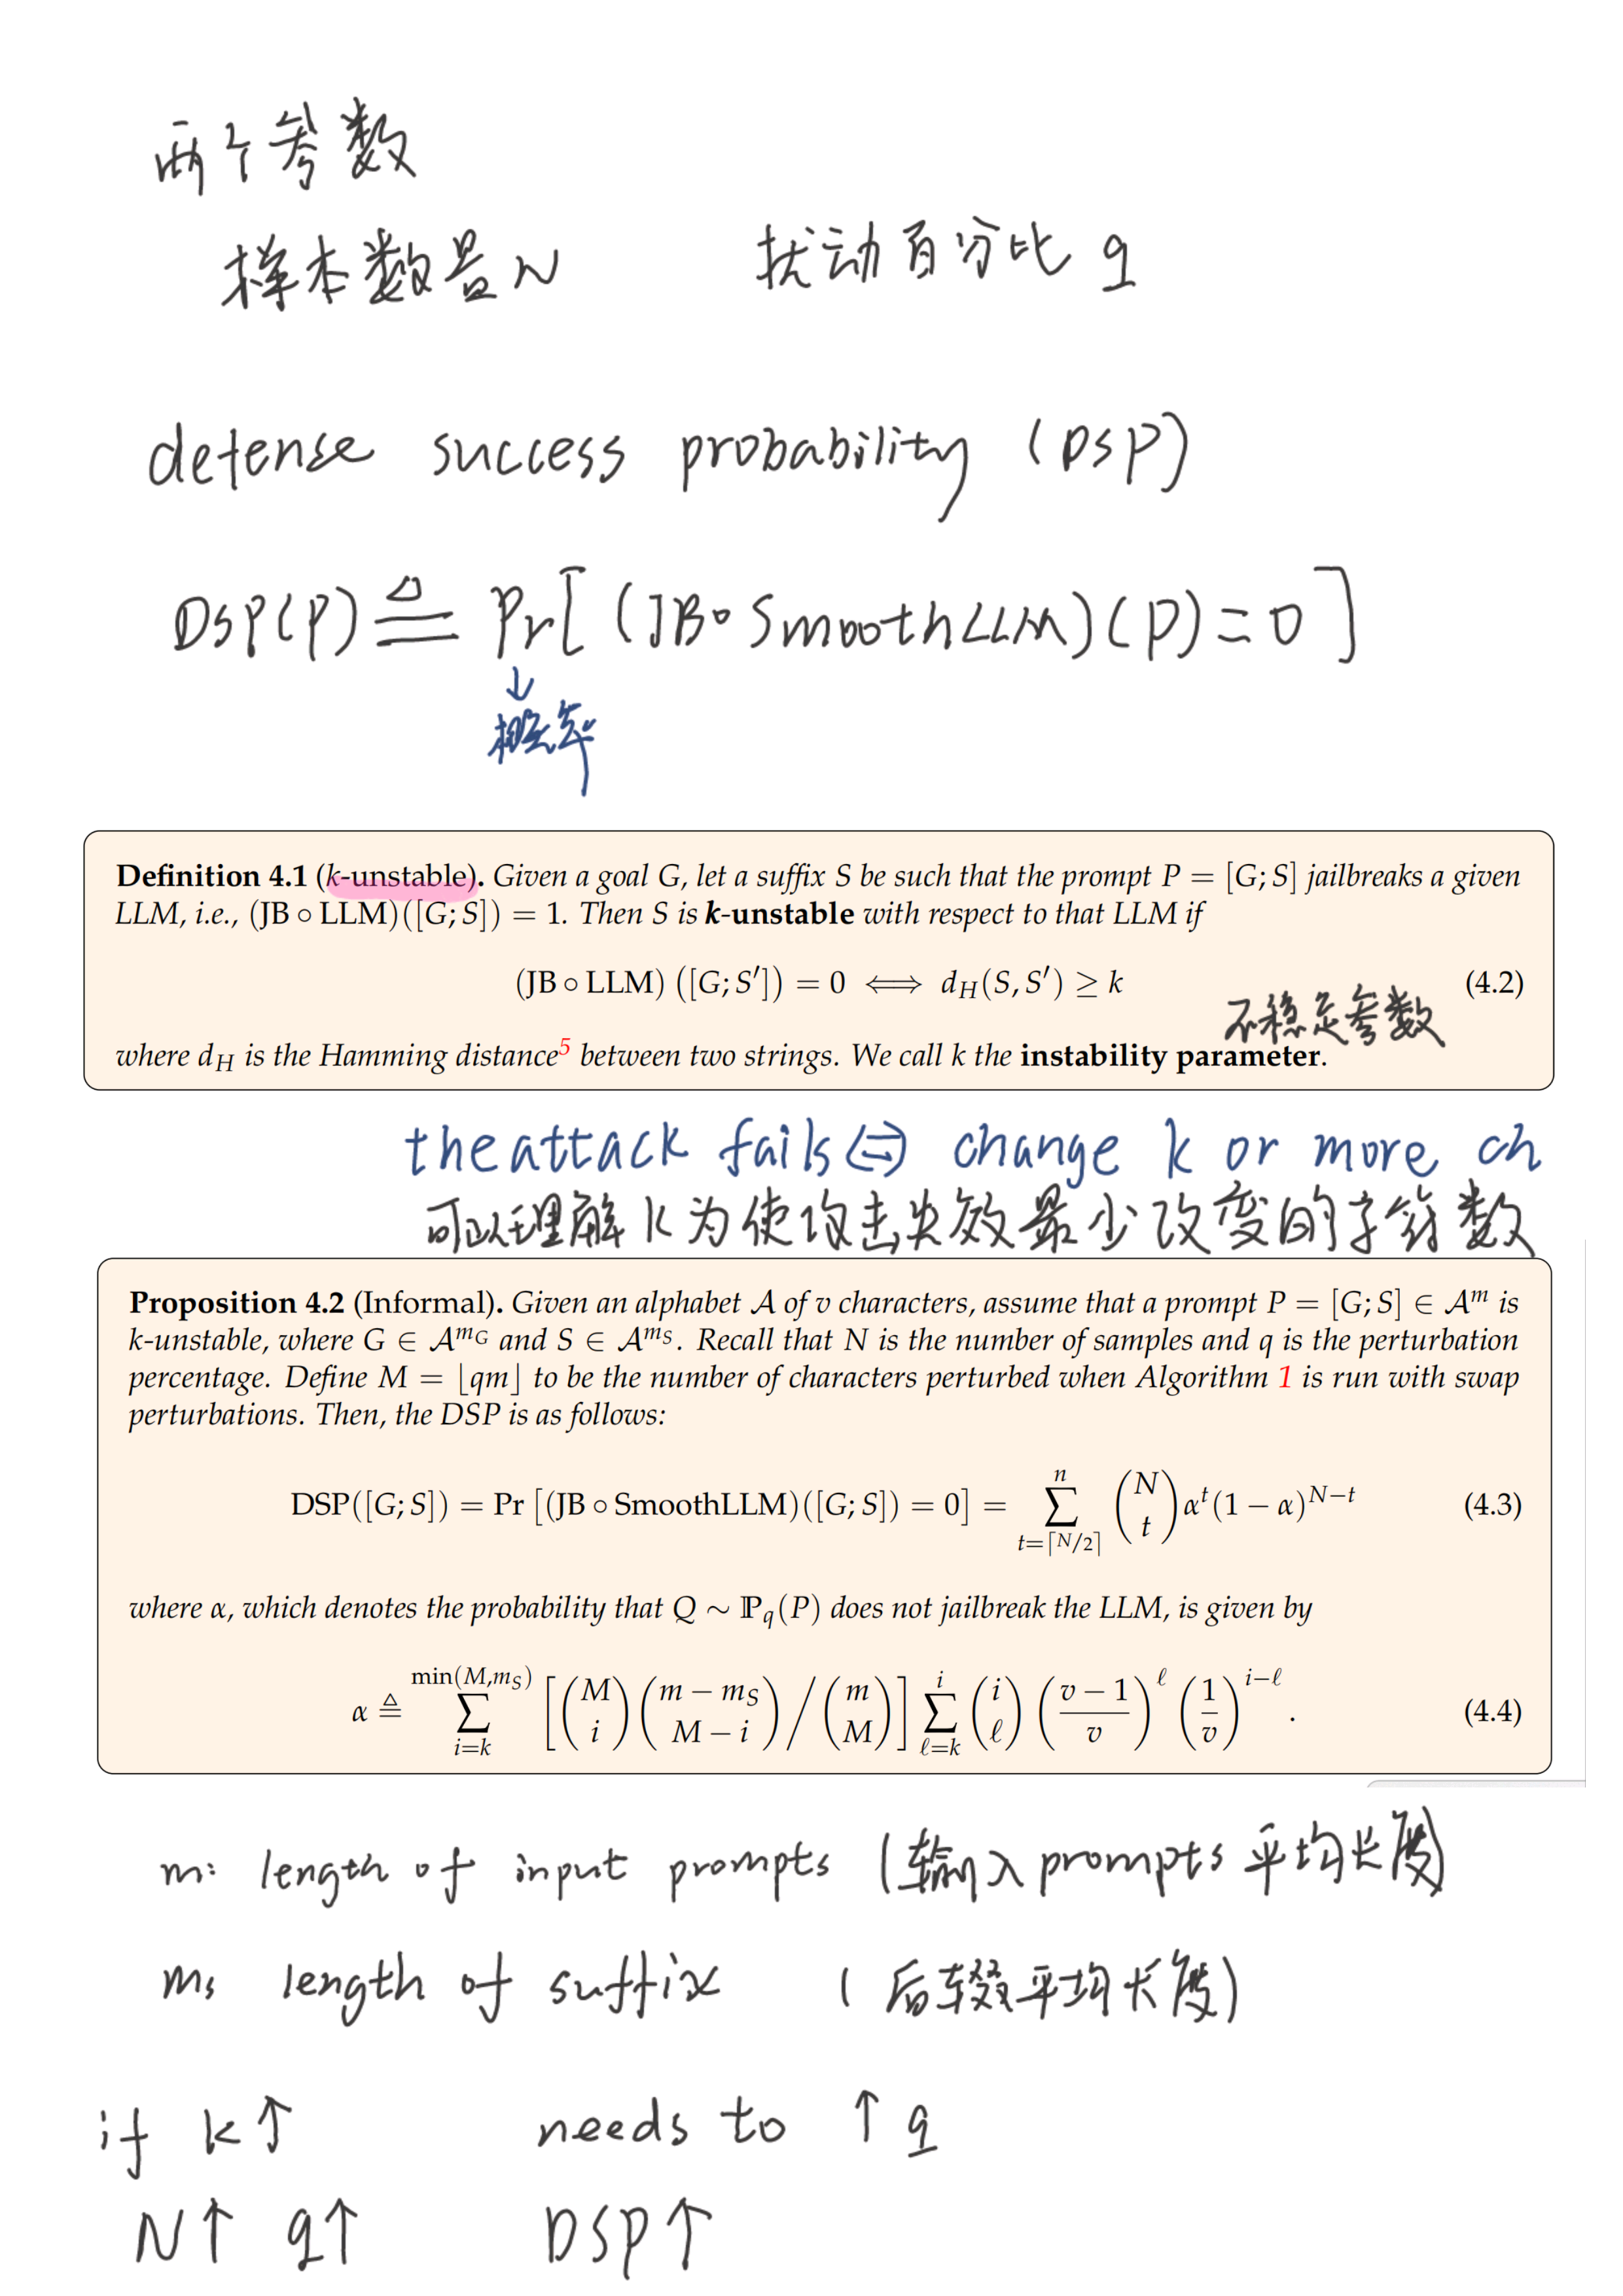 两个参数
样本数量 N 扰动百分比 q
defense success probability (DSP)
DSP(P) ≜ Pr[(JB∘SmoothLLM)(P)=0]
↓
概率
Definition 4.1 (k-unstable). Given a goal G, let a suffix S be such that the prompt P = [G; S] jailbreaks a given
LLM, i.e., (JB ∘ LLM)([G; S]) = 1. Then S is k-unstable with respect to that LLM if
(JB ∘ LLM) ([G; S′]) = 0 ⟺ d_H(S, S′) ≥ k (4.2)
不稳定参数
where d_H is the Hamming distance⁵ between two strings. We call k the instability parameter.
the attack fails ⇔ change k or more ch
可以理解 k 为使攻击失效最少改变的字符数
Proposition 4.2 (Informal). Given an alphabet 𝒜 of v characters, assume that a prompt P = [G; S] ∈ 𝒜^m is
k-unstable, where G ∈ 𝒜^{m_G} and S ∈ 𝒜^{m_S}. Recall that N is the number of samples and q is the perturbation
percentage. Define M = ⌊qm⌋ to be the number of characters perturbed when Algorithm 1 is run with swap
perturbations. Then, the DSP is as follows:
DSP([G; S]) = Pr [(JB ∘ SmoothLLM)([G; S]) = 0] = \sum_{t=⌈N/2⌉}^{n} \binom{N}{t} α^t (1 − α)^{N−t} (4.3)
where α, which denotes the probability that Q ∼ ℙ_q(P) does not jailbreak the LLM, is given by
α ≜ \sum_{i=k}^{min(M,m_S)} [ \binom{M}{i} \binom{m − m_S}{M − i} / \binom{m}{M} ] \sum_{ℓ=k}^{i} \binom{i}{ℓ} (\frac{v − 1}{v})^ℓ (\frac{1}{v})^{i−ℓ} . (4.4)
m: length of input prompts (输入prompts 平均长度)
ms length of suffix (后辍平均长度)
if k↑ needs to ↑ q
N↑ q↑ DSP↑